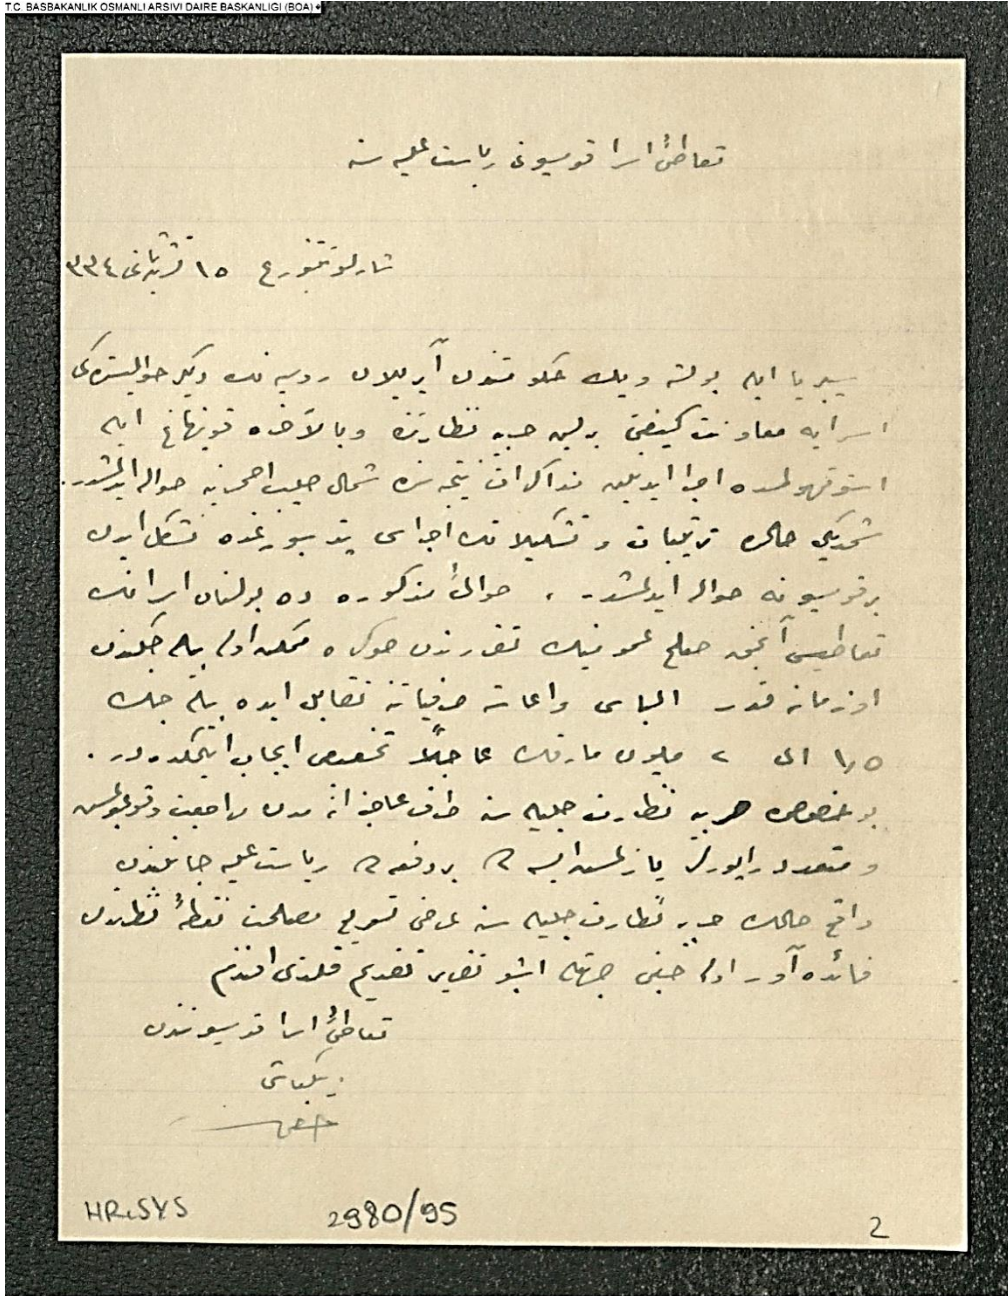 T.C. BASBAKANLIK OSMANLI ARSIVI DAIRE BASKANLIGI (BOA)
تعاطئ اسرا قومسیونی ریاست علیه سنه
شارلوتنبورغ ١٥ تشرین ثانی ٣٣٤
سیبریا ایله بولشه ویك حكومتندن آیریلان روسیه نك دیكر حوالیسنده كی
اسرایه معاونت كیفیتی برلین حربیه نظارتنده وبالآخره قوپنهاغ ایله
استوقهولمده اجرا ایدیلن مذاكرات نتیجه سنده شمال صلیب احمرینه حواله ایدلمشدر.
شمدیكی حالده ترتیبات و تشكیلاتك اجراسی پترسبورغده تشكل ایدن
بر قومسیونه حواله ایدلمشدر. حوالئ مذكوره ده بولنان اسرانك
تعاطیسی آنجق صلح عمومینك تقررندن صوكره ممكن اوله بیله جكندن
او زمانه قدر الباس واعاشه صرفیاتنه تقابل ایده بیله جك
١,٥ الی ٢ ملیون مارقك عاجلاً تخصیصی ایجاب ایتمكده در.
بو خصوصده حربیه نظارت جلیله سنه طرف عاجزانه مدن مراجعت وقوعبولمش
و متعدد راپورلر یازلمش ایسه ده بر دفعه ده ریاست علیه جانبندن
واقع حالك حربیه نظارت جلیله سنه عرضی تسریع مصلحت نقطۀ نظرندن
فائده آور اوله جغی جهتله اشبو تقریر تقدیم قلندی افندم
تعاطئ اسرا قومسیونندن
بیكباشی
HR.SYS
2980/95
2